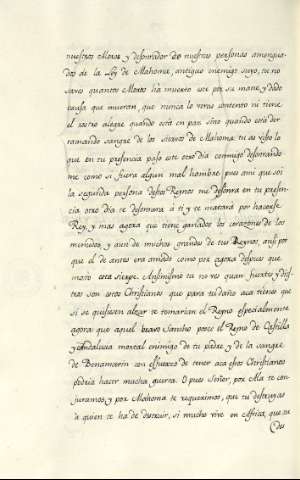 nuestros Moros y destruidor de nuestras personas amengua-
dos de la Ley de Mahoma, antiguo enemigo suyo, tu no
saves quantos Moros ha muerto este por su mano, y dado
causa que mueran, que nunca lo veras contento ni tiene
el rostro alegre quando está en paz sino quando está der-
ramando sangre de los siervos de Mahoma: tu as visto lo
que en tu presencia paso este otro dia conmigo deshonrando
me como si fuera algun mal hombre, pues ami que soi
la segunda persona destos Reynos me desonra en tu presen-
cia otro dia te desonrara a ti y te matara por hacerse
Rey, y mas agora que tiene ganados los corazones de los
menudos, y aun de muchos grandes de tus Reynos, ansi por
que el de antes era amado como por agora despues que
mató esta sierpe. Ansimismo tu no ves quan fuertes y dies-
tros son estos Christianos que para tu daño aca tienes que
si se quisiesen alzar te tomarian el Reyno especialmente
agora que aquel bravo Sancho posee el Reyno de Castilla
y Andalucia mortal enemigo de tu padre y de la sangre
de Benamarin con esfuerzo de tener aca estos Christianos
podria hacer mucha guerra. O pues Señor, por Alá te con-
juramos y por Mahoma te requerimos, que tu destruyas
a quien te ha de destruir, si mucho vive en Africa, que te